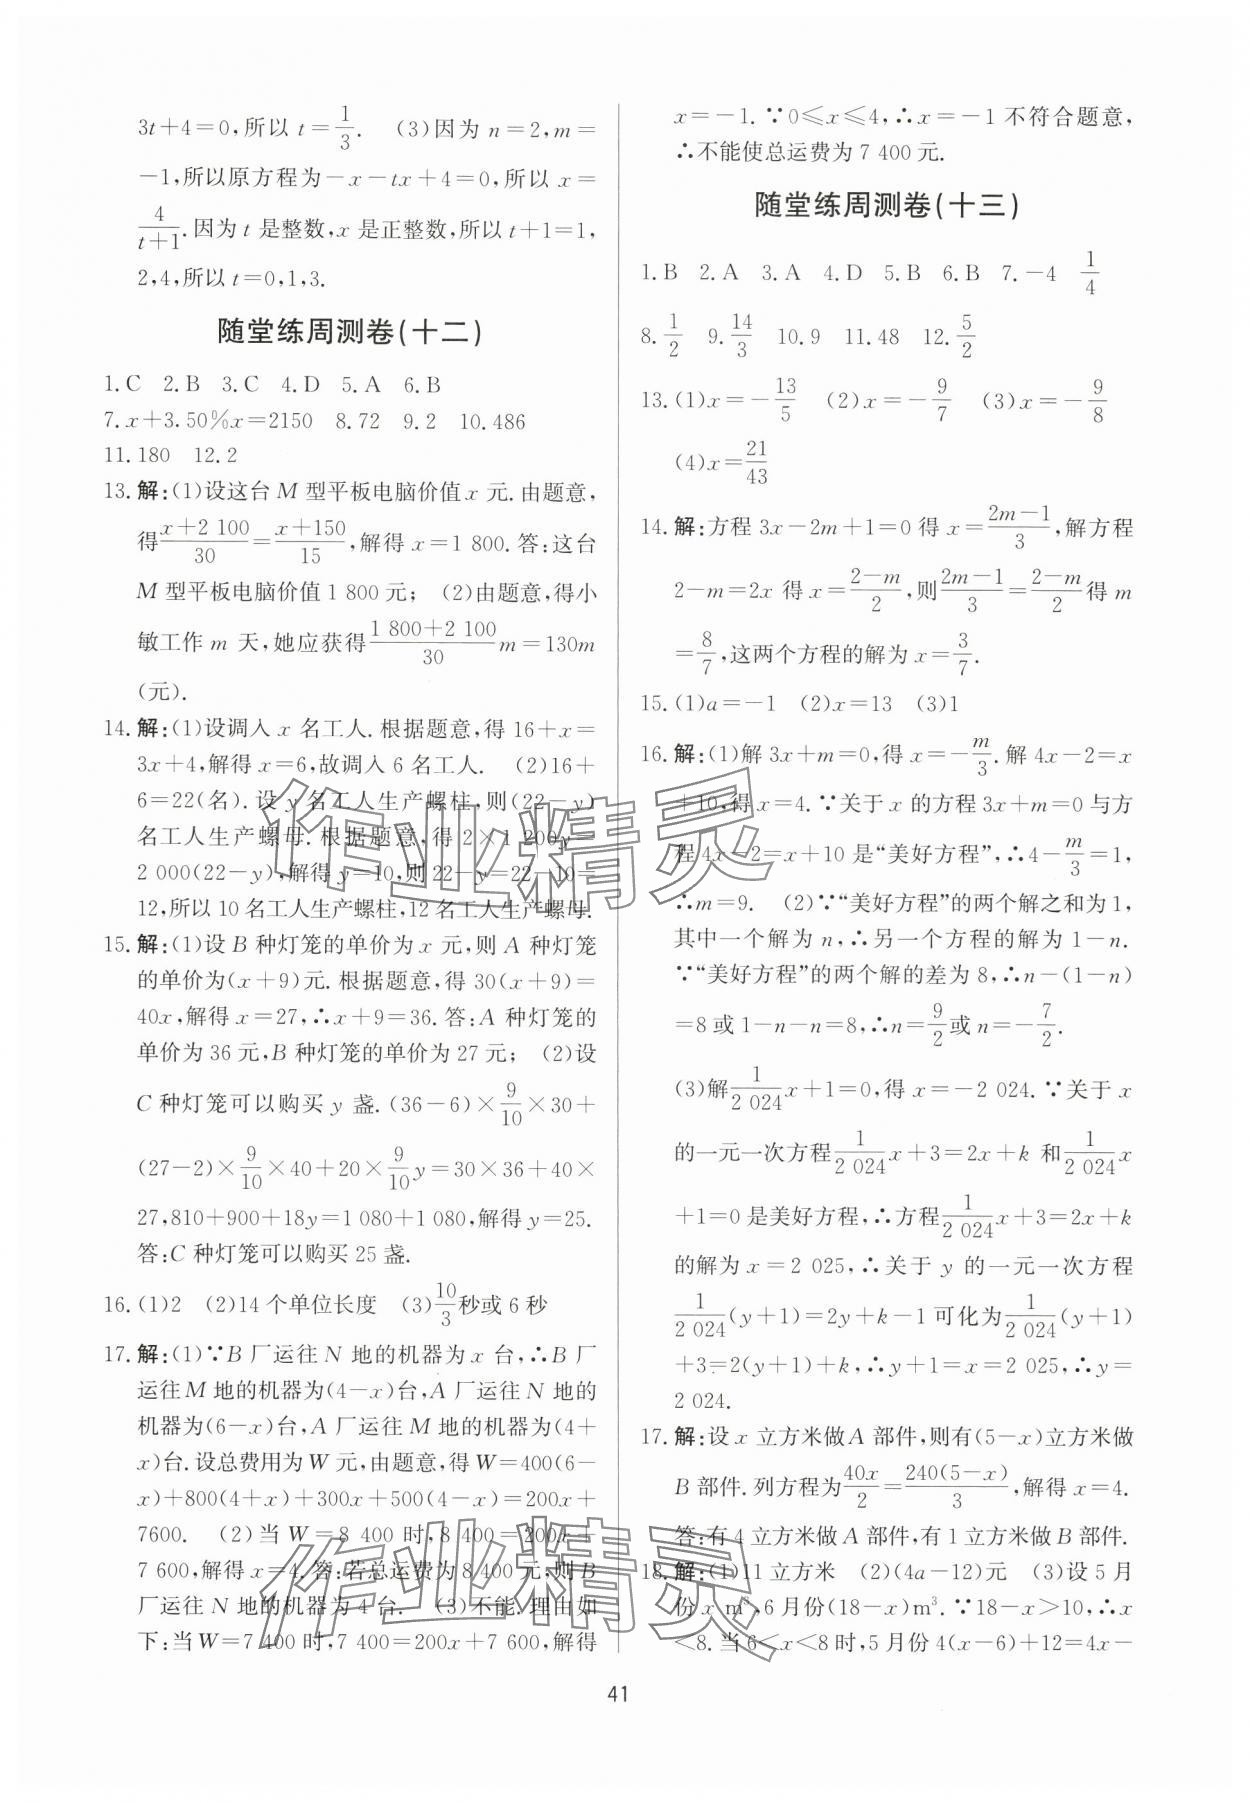 3t+4=0,所以 t=1/3. (3)因为 n=2,m=
-1,所以原方程为-x-tx+4=0,所以 x=
4/(t+1).因为 t 是整数,x 是正整数,所以 t+1=1,
2,4,所以 t=0,1,3.
随堂练周测卷(十二)
1.C 2.B 3.C 4.D 5.A 6.B
7.x+3.50%x=2150 8.72 9.2 10.486
11.180 12.2
13.解:(1)设这台 M 型平板电脑价值 x 元.由题意,
得(x+2 100)/30=(x+150)/15,解得 x=1 800.答:这台
M 型平板电脑价值 1 800 元; (2)由题意,得小
敏工作 m 天,她应获得(1 800+2 100)/30 m=130m
(元).
14.解:(1)设调入 x 名工人.根据题意,得 16+x=
3x+4,解得 x=6,故调入 6 名工人. (2)16+
6=22(名).设 y 名工人生产螺柱,则(22-y)
名工人生产螺母.根据题意,得 2×1 200y=
2 000(22-y),解得 y=10,则 22-y=22-10=
12,所以 10 名工人生产螺柱,12 名工人生产螺母.
15.解:(1)设 B 种灯笼的单价为 x 元,则 A 种灯笼
的单价为(x+9)元.根据题意,得 30(x+9)=
40x,解得 x=27,∴x+9=36.答:A 种灯笼的
单价为 36 元,B 种灯笼的单价为 27 元; (2)设
C 种灯笼可以购买 y 盏.(36-6)×9/10×30+
(27-2)×9/10×40+20×9/10y=30×36+40×
27,810+900+18y=1 080+1 080,解得 y=25.
答:C 种灯笼可以购买 25 盏.
16.(1)2 (2)14 个单位长度 (3)10/3秒或 6 秒
17.解:(1)∵B 厂运往 N 地的机器为 x 台,∴B 厂
运往 M 地的机器为(4-x)台,A 厂运往 N 地的
机器为(6-x)台,A 厂运往 M 地的机器为(4+
x)台.设总费用为 W 元,由题意,得 W=400(6-
x)+800(4+x)+300x+500(4-x)=200x+
7600. (2)当 W=8 400 时,8 400=200x+
7 600,解得 x=4.答:若总运费为 8 400 元,则 B
厂运往 N 地的机器为 4 台. (3)不能.理由如
下:当 W=7 400 时,7 400=200x+7 600,解得
x=-1.∵0≤x≤4,∴x=-1 不符合题意,
∴不能使总运费为 7 400 元.
随堂练周测卷(十三)
1.B 2.A 3.A 4.D 5.B 6.B 7.-4 1/4
8.1/2 9.14/3 10.9 11.48 12.5/2
13.(1)x=-13/5 (2)x=-9/7 (3)x=-9/8
(4)x=21/43
14.解:方程 3x-2m+1=0 得 x=(2m-1)/3,解方程
2-m=2x 得 x=(2-m)/2,则(2m-1)/3=(2-m)/2得 m
=8/7,这两个方程的解为 x=3/7.
15.(1)a=-1 (2)x=13 (3)1
16.解:(1)解 3x+m=0,得 x=-m/3.解 4x-2=x
+10,得 x=4.∵关于 x 的方程 3x+m=0 与方
程 4x-2=x+10 是“美好方程”,∴4-m/3=1,
∴m=9. (2)∵“美好方程”的两个解之和为 1,
其中一个解为 n,∴另一个方程的解为 1-n.
∵“美好方程”的两个解的差为 8,∴n-(1-n)
=8 或 1-n-n=8,∴n=9/2或 n=-7/2.
(3)解1/2 024 x+1=0,得 x=-2 024.∵关于 x
的一元一次方程1/2 024 x+3=2x+k 和1/2 024 x
+1=0 是美好方程,∴方程1/2 024 x+3=2x+k
的解为 x=2 025,∴关于 y 的一元一次方程
1/2 024(y+1)=2y+k-1 可化为1/2 024(y+1)
+3=2(y+1)+k,∴y+1=x=2 025,∴y=
2 024.
17.解:设 x 立方米做 A 部件,则有(5-x)立方米做
B 部件.列方程为40x/2=240(5-x)/3,解得 x=4.
答:有 4 立方米做 A 部件,有 1 立方米做 B 部件.
18.解:(1)11 立方米 (2)(4a-12)元 (3)设 5 月
份 x m³,6 月份(18-x)m³.∵18-x>10,∴x
<8.当 6<x<8 时,5 月份 4(x-6)+12=4x-
41
作业精灵
作业精灵